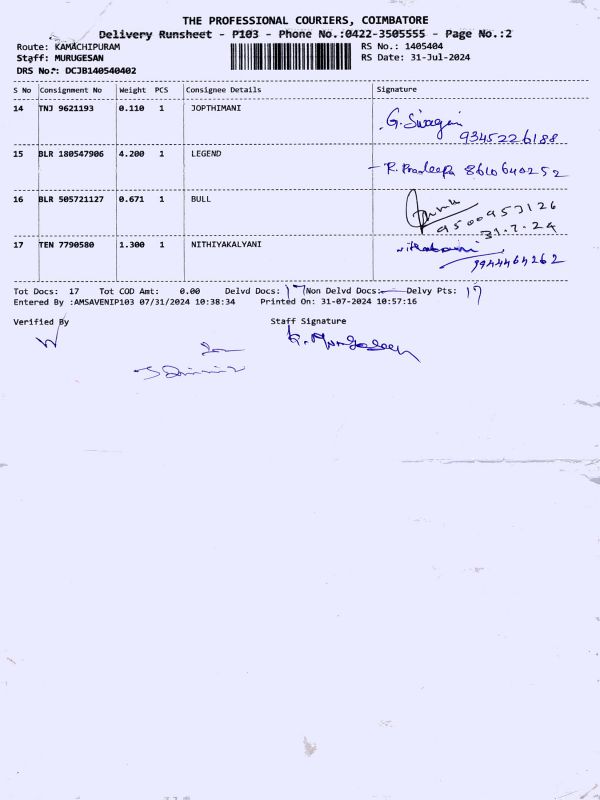 THE PROFESSIONAL COURIERS, COIMBATORE
Delivery Runsheet - P103 - Phone No.:0422-3505555 - Page No.:2
Route: KAMACHIPURAM RS No.: 1405404
Staff: MURUGESAN RS Date: 31-Jul-2024
DRS No.: DCJB140540402
S No Consignment No Weight PCS Consignee Details Signature
14 TNJ 9621193 0.110 1 JOPTHIMANI
9345226188
15 BLR 180547906 4.200 1 LEGEND R. Pradeepa 8610640252
16 BLR 505721127 0.671 1 BULL
9500953126
31.7.24
17 TEN 7790580 1.300 1 NITHIYAKALYANI
9944464262
Tot Docs: 17 Tot COD Amt: 0.00 Delvd Docs: 17 Non Delvd Docs: — Delvy Pts: 17
Entered By :AMSAVENIP103 07/31/2024 10:38:34 Printed On: 31-07-2024 10:57:16
Verified By Staff Signature